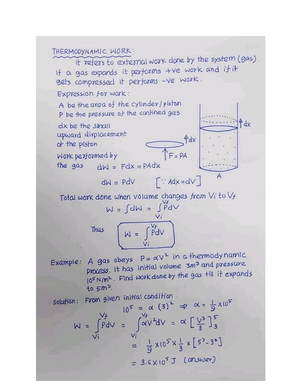 THERMODYNAMIC WORK
it refers to external work done by the system (gas)
if a gas expands it performs +ve work and if it
gets compressed it performs -ve work.
Expression for work:
A be the area of the cylinder/piston
P be the pressure of the confined gas
dx be the small
upward displacement
of the piston
dx
F=PA
dx
A
Work performed by
the gas dW = Fdx = PAdx
dW = PdV [∵ Adx=dV]
Total work done when volume changes from Vi to Vf
W = ∫dW = ∫PdV
Vf
Vi
Thus W = ∫PdV
Vf
Vi
Example: A gas obeys P=αV² in a thermodynamic
process. it has initial volume 3m³ and pressure
10⁵N/m². Find work done by the gas till it expands
to 5m³.
Solution: From given initial condition
10⁵ = α (3)² ⇒ α = 1/9 ×10⁵
W = ∫PdV = ∫αV²dV = α [V³/3]
Vf
Vi
5
3
= 1/9 ×10⁵× 1/3 × [5³-3³]
= 3.6×10⁵ J (answer)